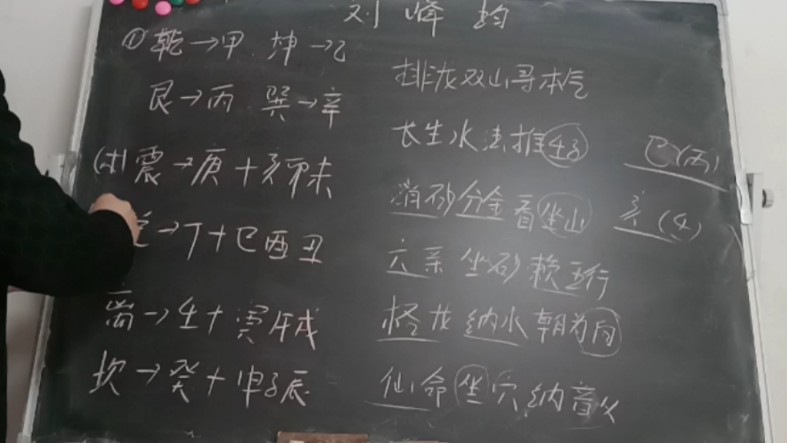 刘
①乾→甲 坤→乙
艮→丙 巽→辛
震→庚+亥卯未
→丁+巳酉丑
离→壬+寅午戌
坎→癸+申子辰
排龙双山寻本气
长生水法推
消砂分金看坐山
六亲坐砂赖五行
格龙纳水朝为向
仙命坐穴纳音
巳(丙)
亥